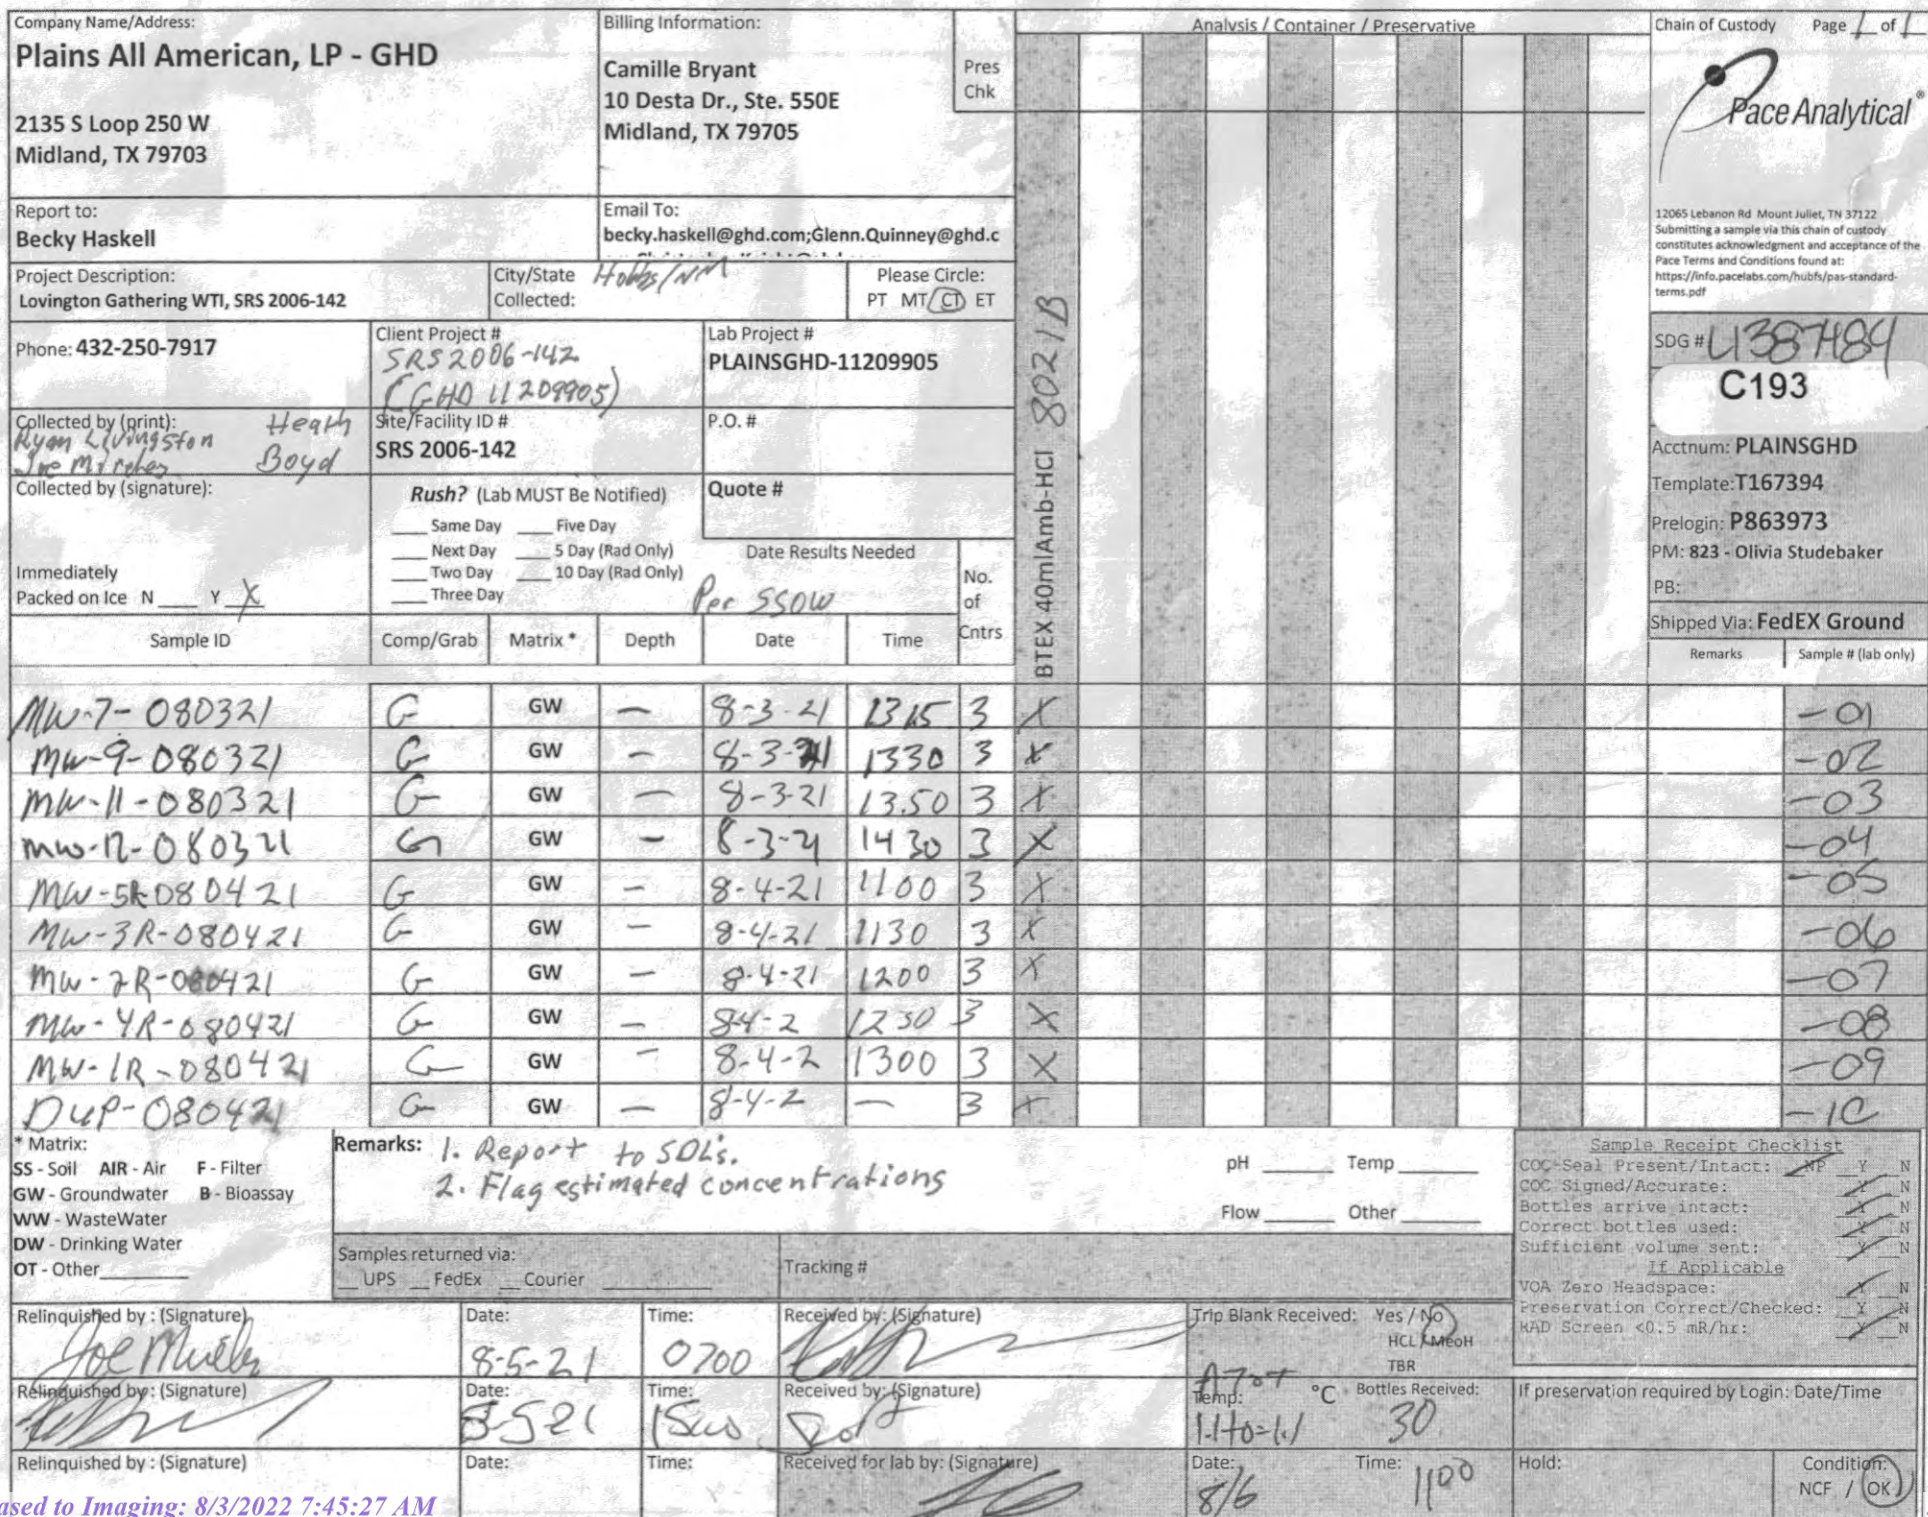 Company Name/Address:
Plains All American, LP - GHD
2135 S Loop 250 W
Midland, TX 79703
Billing Information:
Camille Bryant
10 Desta Dr., Ste. 550E
Midland, TX 79705
Pres
Chk
Analysis / Container / Preservative
Chain of Custody Page 1 of 1
Pace Analytical®
12065 Lebanon Rd Mount Juliet, TN 37122
Submitting a sample via this chain of custody
constitutes acknowledgment and acceptance of the
Pace Terms and Conditions found at:
https://info.pacelabs.com/hubfs/pas-standard-
terms.pdf
Report to:
Becky Haskell
Email To:
becky.haskell@ghd.com;Glenn.Quinney@ghd.c
Project Description:
Lovington Gathering WTI, SRS 2006-142
City/State
Collected: Hobbs/NM
Please Circle:
PT MT CT ET
Phone: 432-250-7917
Client Project #
SRS2006-142
(GHD 11209905)
Lab Project #
PLAINSGHD-11209905
Collected by (print): Heath
Ryan Livingston
Joe Boyd
Site/Facility ID #
SRS 2006-142
P.O. #
Collected by (signature):
Rush? (Lab MUST Be Notified)
Same Day Five Day
Next Day 5 Day (Rad Only)
Two Day 10 Day (Rad Only)
Three Day
Quote #
Date Results Needed
Per SSOW
Immediately
Packed on Ice N Y X
No.
of
Cntrs
BTEX 40mlAmb-HCl 8021B
SDG # L1387484
C193
Acctnum: PLAINSGHD
Template: T167394
Prelogin: P863973
PM: 823 - Olivia Studebaker
PB:
Shipped Via: FedEX Ground
Sample ID Comp/Grab Matrix * Depth Date Time Remarks Sample # (lab only)
MW-7-080321 G GW — 8-3-21 1315 3 X -01
MW-9-080321 G GW — 8-3-21 1330 3 X -02
MW-11-080321 G GW — 8-3-21 13.50 3 X -03
MW-12-080321 G GW — 8-3-21 1430 3 X -04
MW-5R-080421 G GW — 8-4-21 1100 3 X -05
MW-3R-080421 G GW — 8-4-21 1130 3 X -06
MW-2R-080421 G GW — 8-4-21 1200 3 X -07
MW-4R-080421 G GW — 8-4-2 1230 3 X -08
MW-1R-080421 G GW — 8-4-2 1300 3 X -09
DUP-080421 G GW — 8-4-2 — 3 X -10
* Matrix:
SS - Soil AIR - Air F - Filter
GW - Groundwater B - Bioassay
WW - WasteWater
DW - Drinking Water
OT - Other
Remarks: 1. Report to SDL's.
2. Flag estimated concentrations
pH Temp
Flow Other
Samples returned via:
UPS FedEx Courier
Tracking #
Sample Receipt Checklist
COC Seal Present/Intact: NP Y N
COC Signed/Accurate: Y N
Bottles arrive intact: Y N
Correct bottles used: Y N
Sufficient volume sent: Y N
If Applicable
VOA Zero Headspace: Y N
Preservation Correct/Checked: Y N
RAD Screen <0.5 mR/hr: Y N
Relinquished by : (Signature) Date: 8-5-21 Time: 0700 Received by: (Signature)
Trip Blank Received: Yes / No
HCL / MeoH
TBR
Relinquished by : (Signature) Date: 8-5-21 Time: Received by: (Signature)
Temp: °C Bottles Received:
1.1+0=1.1 30
If preservation required by Login: Date/Time
Relinquished by : (Signature) Date: Time: Received for lab by: (Signature) Date: 8/6 Time: 1100 Hold: Condition:
NCF / OK
ased to Imaging: 8/3/2022 7:45:27 AM